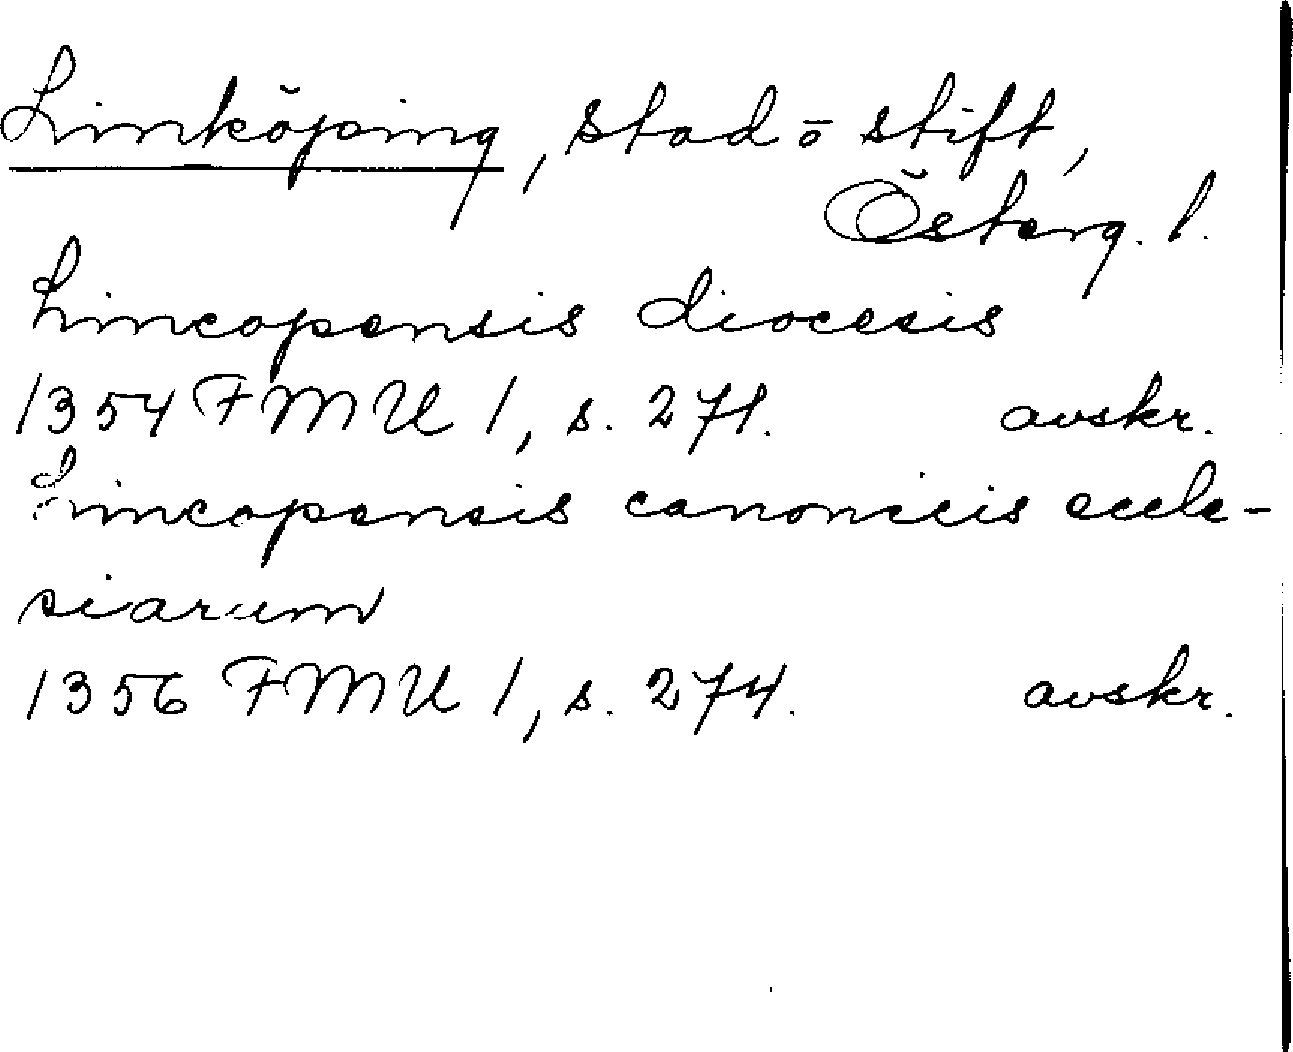 Linköping, stad ō stift,
Österg. l.
Lincopensis diocesis
1354 FMU 1, s. 271. avskr.
Lincopensis canonicis eccle-
siarum
1356 FMU 1, s. 274. avskr.